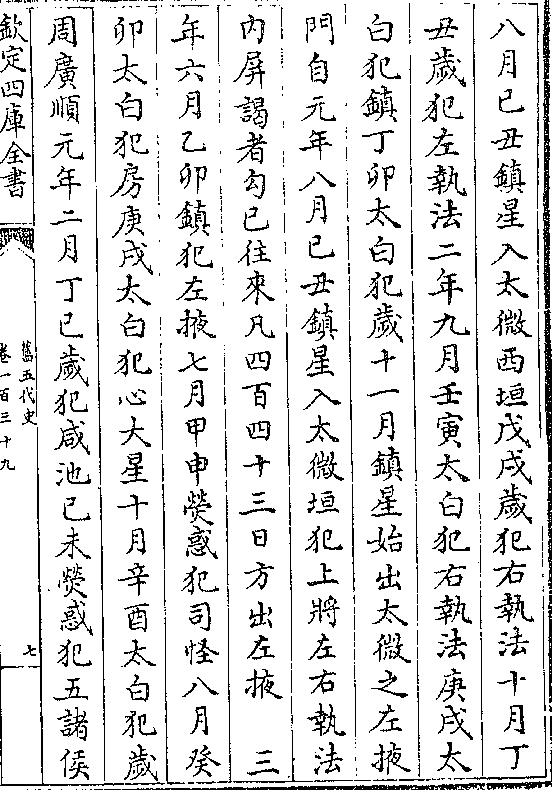 八月己丑鎮星入太微西垣戊戌歲犯右執法十月丁
丑歲犯左執法二年九月壬寅太白犯右執法庚戌太
白犯鎮丁卯太白犯歲十一月鎮星始出太微之左掖
門自元年八月己丑鎮星入太微垣犯上將左右執法
內屏謁者勾已往來凡四百四十三日方出左掖　三
年六月乙卯鎮犯左掖七月甲申熒惑犯司怪八月癸
卯太白犯房庚戌太白犯心大星十月辛酉太白犯歲
周廣順元年二月丁巳歲犯咸池己未熒惑犯五諸侯
欽定四庫全書
舊五代史
卷一百三十九
七